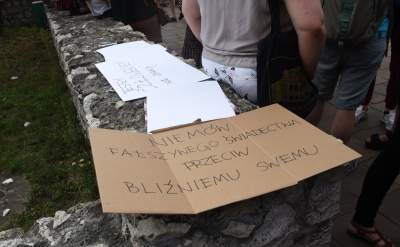 NIEMÓW
FAŁSZYWEGO ŚWIADECTWA
PRZECIW
BLIŹNIEMU SWEMU